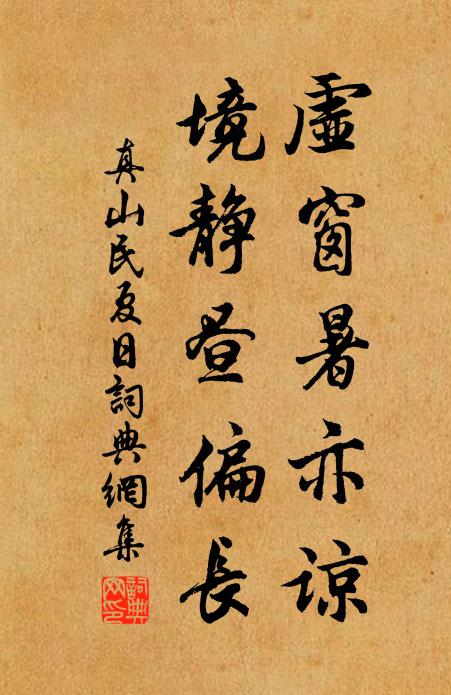 虛窗暑亦諒
境靜昼偏長
真山民夏日詞典網集
詞典
网印